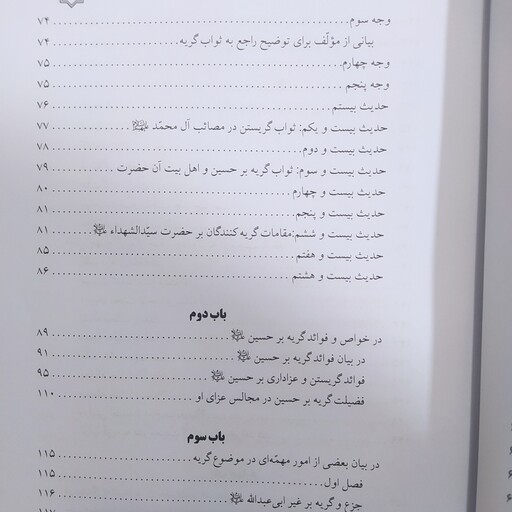 وجه سوم ........ ۷۴
بیانی از مؤلّف برای توضیح راجع به ثواب گریه ........ ۷۴
وجه چهارم ........ ۷۵
وجه پنجم ........ ۷۵
حدیث بیستم ........ ۷۶
حدیث بیست و یکم: ثواب گریستن در مصائب آل محمّد ﷺ ........ ۷۷
حدیث بیست و دوم ........ ۷۸
حدیث بیست و سوم: ثواب گریه بر حسین و اهل بیت آن حضرت ........ ۷۹
حدیث بیست و چهارم ........ ۸۰
حدیث بیست و پنجم ........ ۸۱
حدیث بیست و ششم: مقامات گریه‌کنندگان بر حضرت سیّدالشهداء ........ ۸۱
حدیث بیست و هفتم ........ ۸۵
حدیث بیست و هشتم ........ ۸۶
باب دوم
در خواص و فوائد گریه بر حسین ........ ۸۹
در بیان فوائد گریه بر حسین ........ ۹۱
فوائد گریستن و عزاداری بر حسین ........ ۹۵
فضیلت گریه بر حسین در مجالس عزای او ........ ۱۱۰
باب سوم
در بیان بعضی از امور مهمّه‌ای در موضوع گریه ........ ۱۱۵
فصل اول ........ ۱۱۵
جزع و گریه بر غیر ابی‌عبدالله ........ ۱۱۶